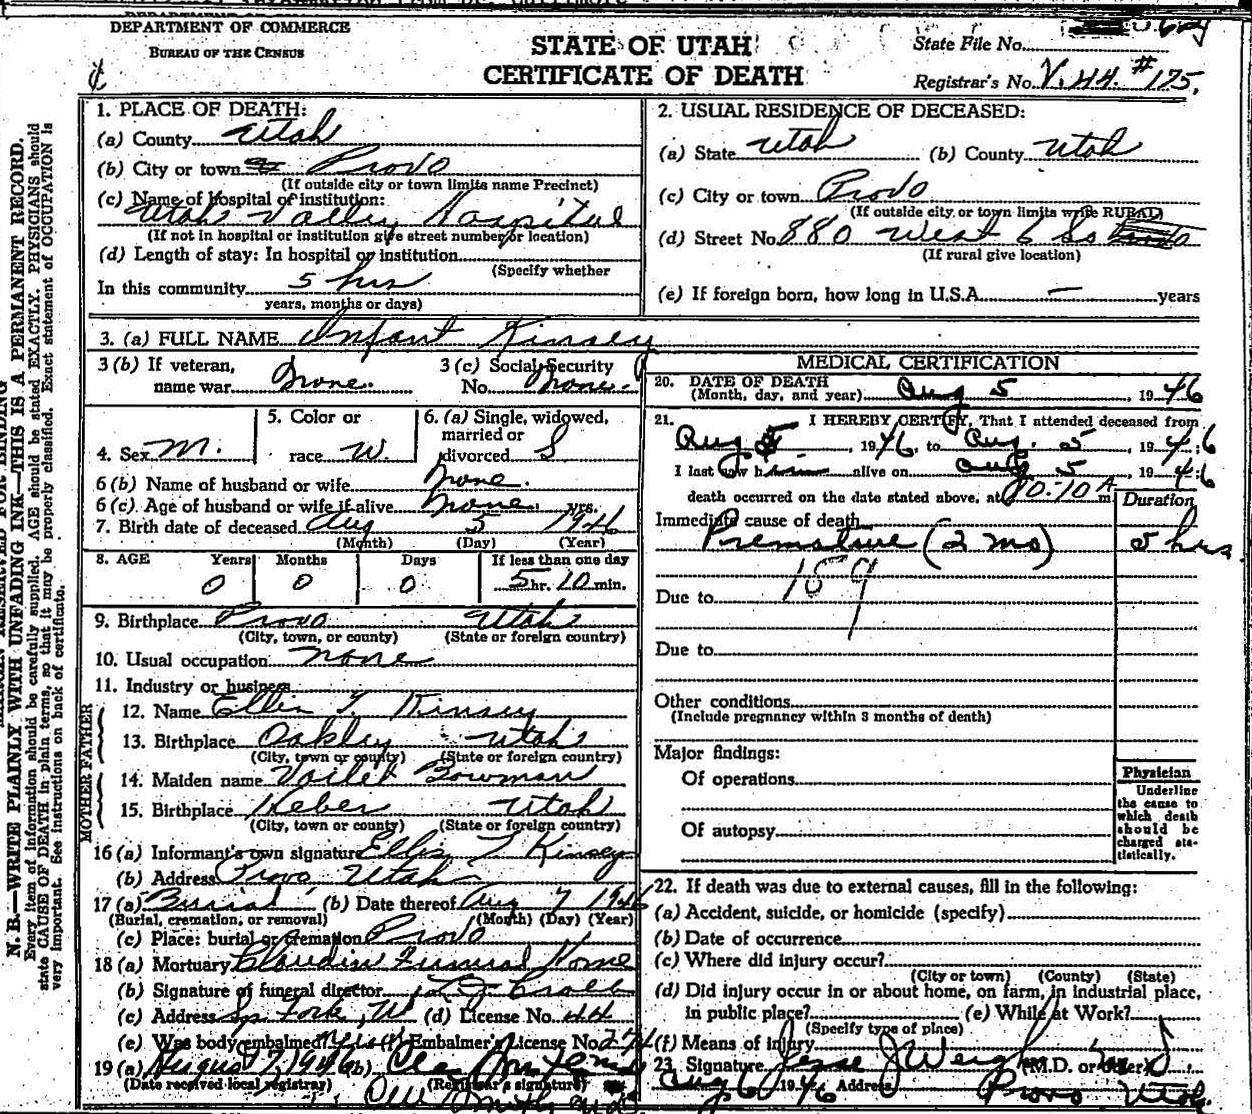 DEPARTMENT OF COMMERCE
BUREAU OF THE CENSUS
STATE OF UTAH
CERTIFICATE OF DEATH
State File No.
Registrar's No. V. 44. #175.
N. B.—WRITE PLAINLY WITH UNFADING INK—THIS IS A PERMANENT RECORD.
Every item of information should be carefully supplied. AGE should be stated EXACTLY. PHYSICIANS should
state CAUSE OF DEATH in plain terms, so that it may be properly classified. Exact statement of OCCUPATION is
very important. See instructions on back of certificate.
1. PLACE OF DEATH:
(a) County Utah
(b) City or town Provo
(If outside city or town limits name Precinct)
(c) Name of hospital of institution:
Utah Valley Hospital
(If not in hospital or institution give street number or location)
(d) Length of stay: In hospital or institution
(Specify whether
In this community 5 hrs
years, months or days)
2. USUAL RESIDENCE OF DECEASED:
(a) State Utah (b) County Utah
(c) City or town Provo
(If outside city or town limits write RURAL)
(d) Street No. 880 West 6 So
(If rural give location)
(e) If foreign born, how long in U.S.A. — years
3. (a) FULL NAME Infant Kinsey
3 (b) If veteran, name war None.
3 (c) Social Security No. None.
4. Sex M.
5. Color or race W.
6. (a) Single, widowed, married or divorced S
6 (b) Name of husband or wife None.
6 (c) Age of husband or wife if alive None. yrs.
7. Birth date of deceased Aug 5 1946
(Month) (Day) (Year)
8. AGE Years Months Days If less than one day
0 0 0 5 hr. 10 min.
9. Birthplace Provo Utah
(City, town, or county) (State or foreign country)
10. Usual occupation none
11. Industry or business
FATHER
12. Name Ellis T. Kinsey
13. Birthplace Oakley Utah
(City, town or county) (State or foreign country)
MOTHER
14. Maiden name Voilet Bowman
15. Birthplace Heber Utah
(City, town or county) (State or foreign country)
16 (a) Informant's own signature Ellis T. Kinsey
(b) Address Provo Utah
17 (a) Burial (b) Date thereof Aug 7 1946
(Burial, cremation, or removal) (Month) (Day) (Year)
(c) Place: burial or cremation Provo
18 (a) Mortuary Claudin Funeral Home
(b) Signature of funeral director
(c) Address Sp Fork, U (d) License No. 44
(e) Was body embalmed? (f) Embalmer's License No.
19 (a) August 7, 1946 (b)
(Date received local registrar) (Registrar's signature)
MEDICAL CERTIFICATION
20. DATE OF DEATH
(Month, day, and year) Aug 5, 1946
21. I HEREBY CERTIFY, That I attended deceased from
Aug 5, 1946, to Aug. 5, 194:6
I last saw him alive on Aug 5, 194:6
death occurred on the date stated above, at 10:10 A m.
Duration
Immediate cause of death
Premature (2 mo) 5 hrs
159
Due to
Due to
Other conditions
(Include pregnancy within 3 months of death)
Major findings:
Of operations
Of autopsy
Physician
Underline
the cause to
which death
should be
charged sta-
tistically.
22. If death was due to external causes, fill in the following:
(a) Accident, suicide, or homicide (specify)
(b) Date of occurrence
(c) Where did injury occur?
(City or town) (County) (State)
(d) Did injury occur in or about home, on farm, in industrial place,
in public place? (e) While at Work?
(Specify type of place)
(f) Means of injury
23. Signature Jesse J Weigh (M.D. or other)
Aug 6 1946 Address Provo Utah